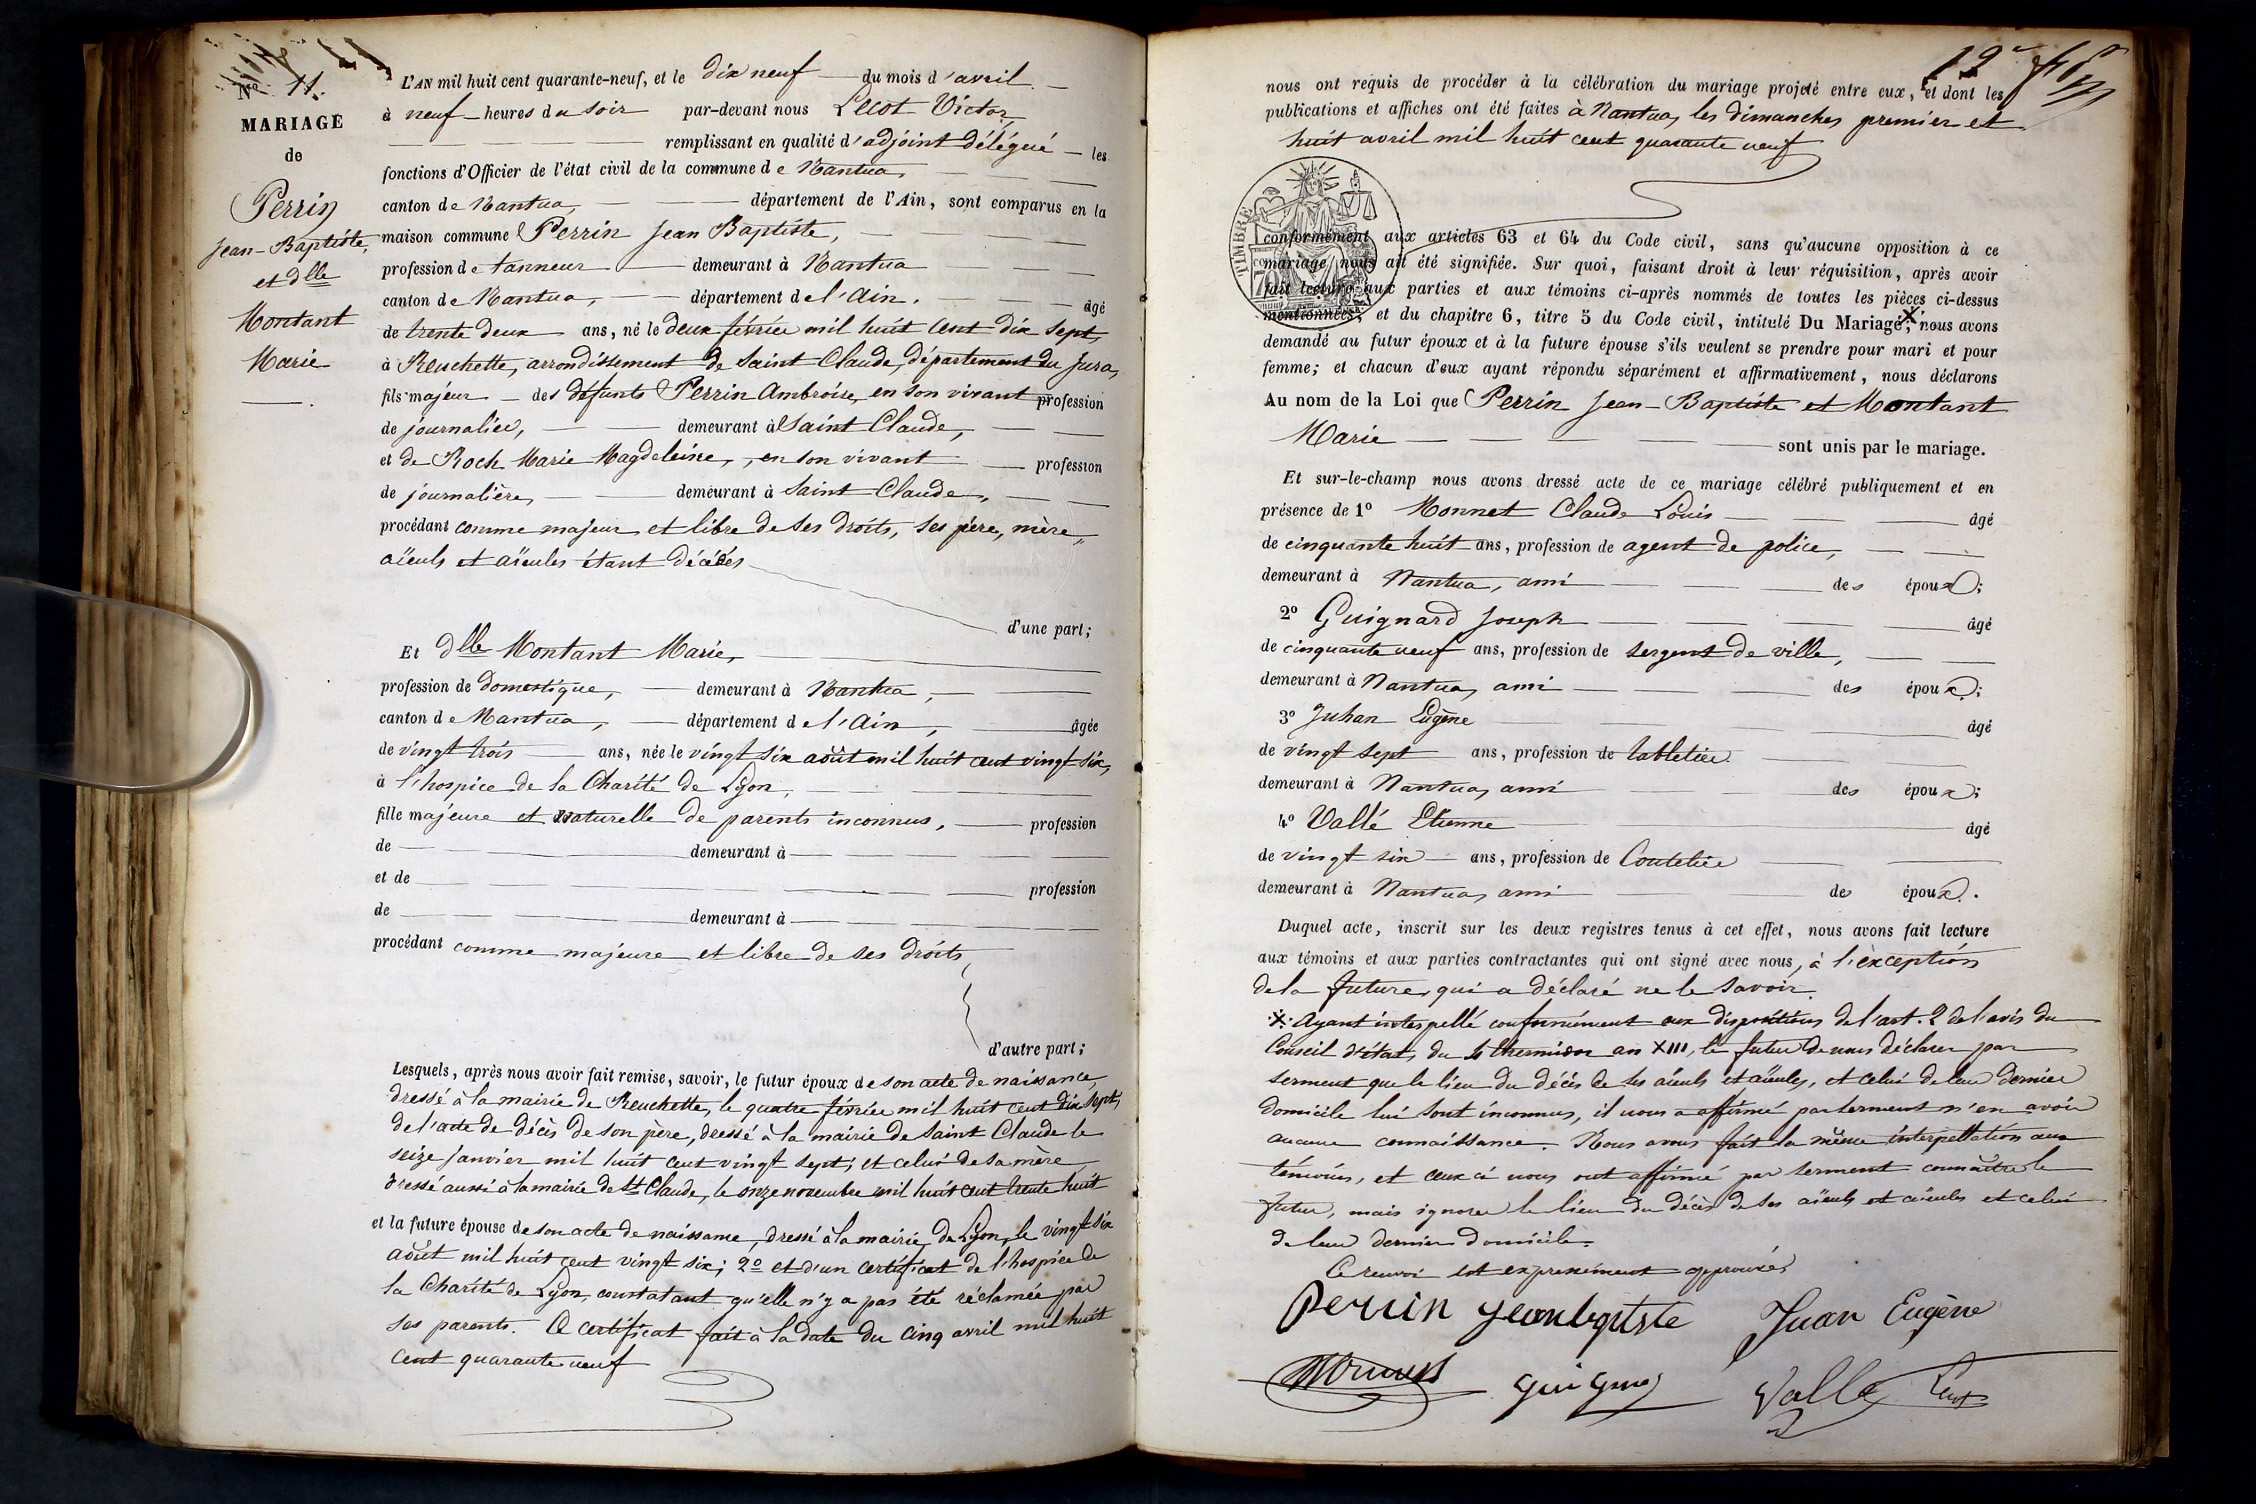 N° 11.
MARIAGE
de
Perrin
Jean-Baptiste,
et dlle
Montant
Marie
L'AN mil huit cent quarante-neuf, et le dix neuf du mois d'avril
à neuf heures du soir par-devant nous Lecot Victor,
remplissant en qualité d'adjoint délégué les
fonctions d'Officier de l'état civil de la commune de Nantua,
canton de Nantua, département de l'Ain, sont comparus en la
maison commune Perrin Jean Baptiste,
profession de tanneur demeurant à Nantua
canton de Nantua, département de l'Ain, âgé
de trente deux ans, né le deux février mil huit cent dix sept,
à Reuchette, arrondissement de Saint Claude, département du Jura,
fils majeur des défunts Perrin Ambroise, en son vivant profession
de journalier, demeurant à Saint Claude,
et de Roch Marie Magdeleine, en son vivant profession
de journalière, demeurant à Saint Claude,
procédant comme majeur et libre de ses droits, ses père, mère,
aïeuls et aïeules étant décédés
d'une part;
Et dlle Montant Marie,
profession de domestique, demeurant à Nantua,
canton de Nantua, département de l'Ain, âgée
de vingt trois ans, née le vingt six août mil huit cent vingt six,
à l'hospice de la Charité de Lyon,
fille majeure et naturelle de parents inconnus, profession
de demeurant à
et de profession
de demeurant à
procédant comme majeure et libre de ses droits,
d'autre part;
Lesquels, après nous avoir fait remise, savoir, le futur époux de son acte de naissance,
dressé à la mairie de Reuchette, le quatre février mil huit cent dix sept,
de l'acte de décès de son père, dressé à la mairie de Saint Claude le
seize janvier mil huit cent vingt sept; et celui de sa mère
dressé aussi à la mairie de St Claude, le onze novembre mil huit cent trente huit
et la future épouse de son acte de naissance, dressé à la mairie de Lyon, le vingt six
août mil huit cent vingt six; 2° et d'un certificat de l'hospice de
la Charité de Lyon, constatant qu'elle n'y a pas été réclamée par
ses parents. Ce certificat fait à la date du cinq avril mil huit
cent quarante neuf
12
nous ont requis de procéder à la célébration du mariage projeté entre eux, et dont les
publications et affiches ont été faites à Nantua, les dimanches premier et
huit avril mil huit cent quarante neuf
TIMBRE
conformément aux articles 63 et 64 du Code civil, sans qu'aucune opposition à ce
mariage nous ait été signifiée. Sur quoi, faisant droit à leur réquisition, après avoir
fait lecture aux parties et aux témoins ci-après nommés de toutes les pièces ci-dessus
mentionnées, et du chapitre 6, titre 5 du Code civil, intitulé Du Mariage, X nous avons
demandé au futur époux et à la future épouse s'ils veulent se prendre pour mari et pour
femme; et chacun d'eux ayant répondu séparément et affirmativement, nous déclarons
Au nom de la Loi que Perrin Jean-Baptiste et Montant
Marie sont unis par le mariage.
Et sur-le-champ nous avons dressé acte de ce mariage célébré publiquement et en
présence de 1° Monnet Claude Louis âgé
de cinquante huit ans, profession de agent de police,
demeurant à Nantua, ami des époux;
2° Guignard Joseph âgé
de cinquante neuf ans, profession de sergent de ville,
demeurant à Nantua, ami des époux;
3° Juhan Eugène âgé
de vingt sept ans, profession de tabletier
demeurant à Nantua, ami des époux;
4° Vallé Etienne âgé
de vingt six ans, profession de Coutelier
demeurant à Nantua, ami des époux.
Duquel acte, inscrit sur les deux registres tenus à cet effet, nous avons fait lecture
aux témoins et aux parties contractantes qui ont signé avec nous, à l'exception
de la future, qui a déclaré ne le savoir.
X Ayant interpellé conformément aux dispositions de l'art. 2 de l'avis du
Conseil d'état, du 4 thermidor an XIII, le futur de nous déclarer par
serment que le lieu du décès de ses aïeuls et aïeules, et celui de leur dernier
domicile lui sont inconnus, il nous a affirmé par serment n'en avoir
aucune connaissance. Nous avons fait la même interpellation aux
témoins, et ceux ci nous ont affirmé par serment connaître le
futur, mais ignorer le lieu du décès de ses aïeuls et aïeules et celui
de leur dernier domicile.
Ce renvoi est expressément approuvé,
Perrin jeanbqtiste Juan Eugène
Valle Lecot